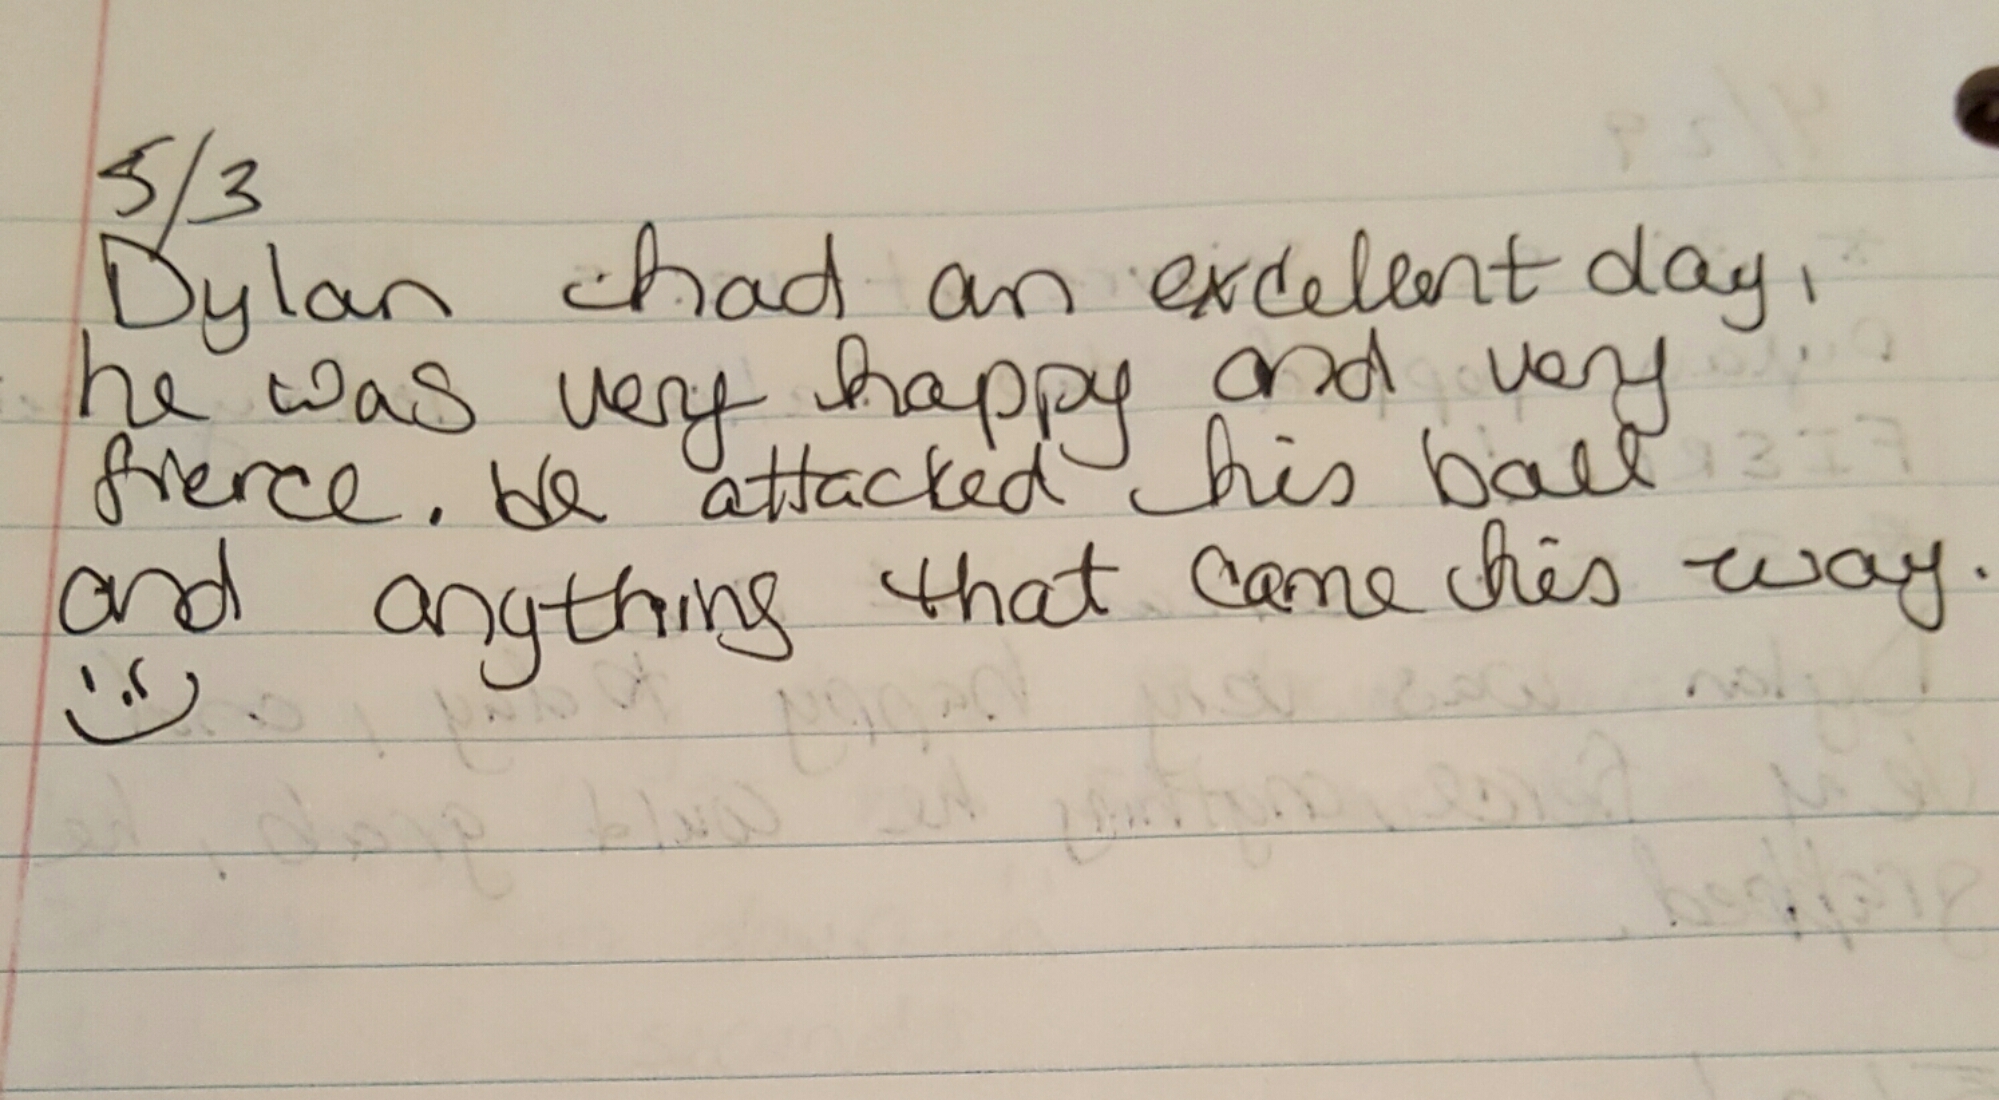 5/3
Dylan had an excellent day,
he was very happy and very
fierce. He attacked his ball
and anything that came his way.